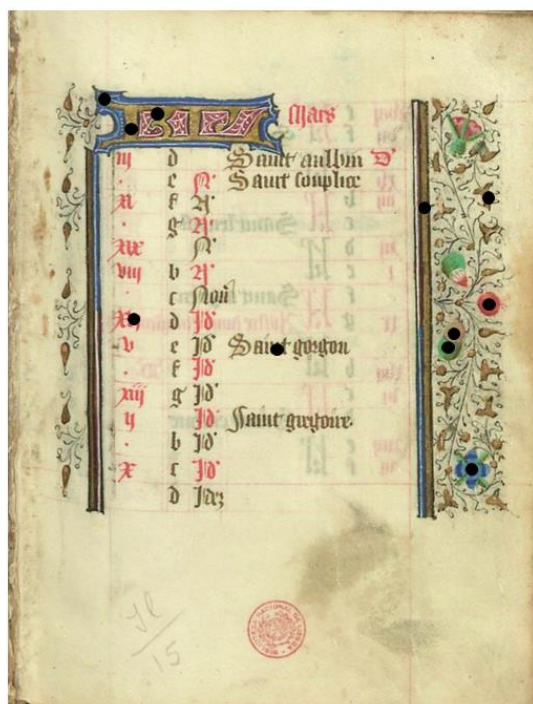 Mars
iij d Saint aulbin D
. e N Saint souplice
xi f N
. g N
xix N
viij b N
. c Non
d Id
v e Id Saint gorgon
. f Id
xiij g Id
ij Id Saint gregoire.
. b Id
x c Id
d Idez
15